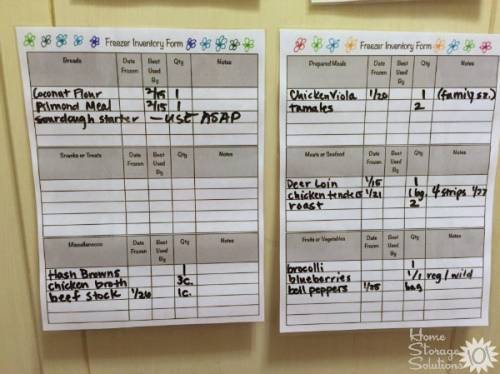 Freezer Inventory Form
Breads Date Frozen Best Used By Qty Notes
Coconut Flour 2/15 1
Almond Meal 2/15 1
sourdough starter - USE ASAP
Snacks or Treats Date Frozen Best Used By Qty Notes
Miscellaneous Date Frozen Best Used By Qty Notes
Hash Browns 1
chicken broth 3c.
beef stock 1/26 1c.
Freezer Inventory Form
Prepared Meals Date Frozen Best Used By Qty Notes
Chicken Viola 1/20 1 (family sz.)
tamales 2
Meats or Seafood Date Frozen Best Used By Qty Notes
Deer Loin 1/15 1
chicken tenders 1/21 1 bg. 4 strips 1/27
roast 2
Fruits or Vegetables Date Frozen Best Used By Qty Notes
brocolli 1
blueberries 1/1 reg / wild
bell peppers 1/25 bag
Home
Storage
Solutions
101